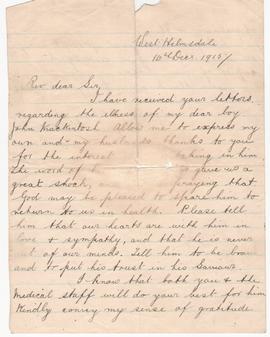 West Helmsdale
10th Decr. 1915
Rev dear Sir,
I have received your letters
regarding the illness of my dear boy
John Mackintosh Allow me to express my
own and my husbands thanks to you
for the interest in him
The word of gave us a
great shock, praying that
God may be pleased to spare him to
return to us in health. Please tell
him that our hearts are with him in
love & sympathy, and that he is never
out of our minds. Tell him to be brave
and to put his trust in his Saviour.
I know that both you & the
Medical staff will do your best for him
Kindly convey my sense of gratitude